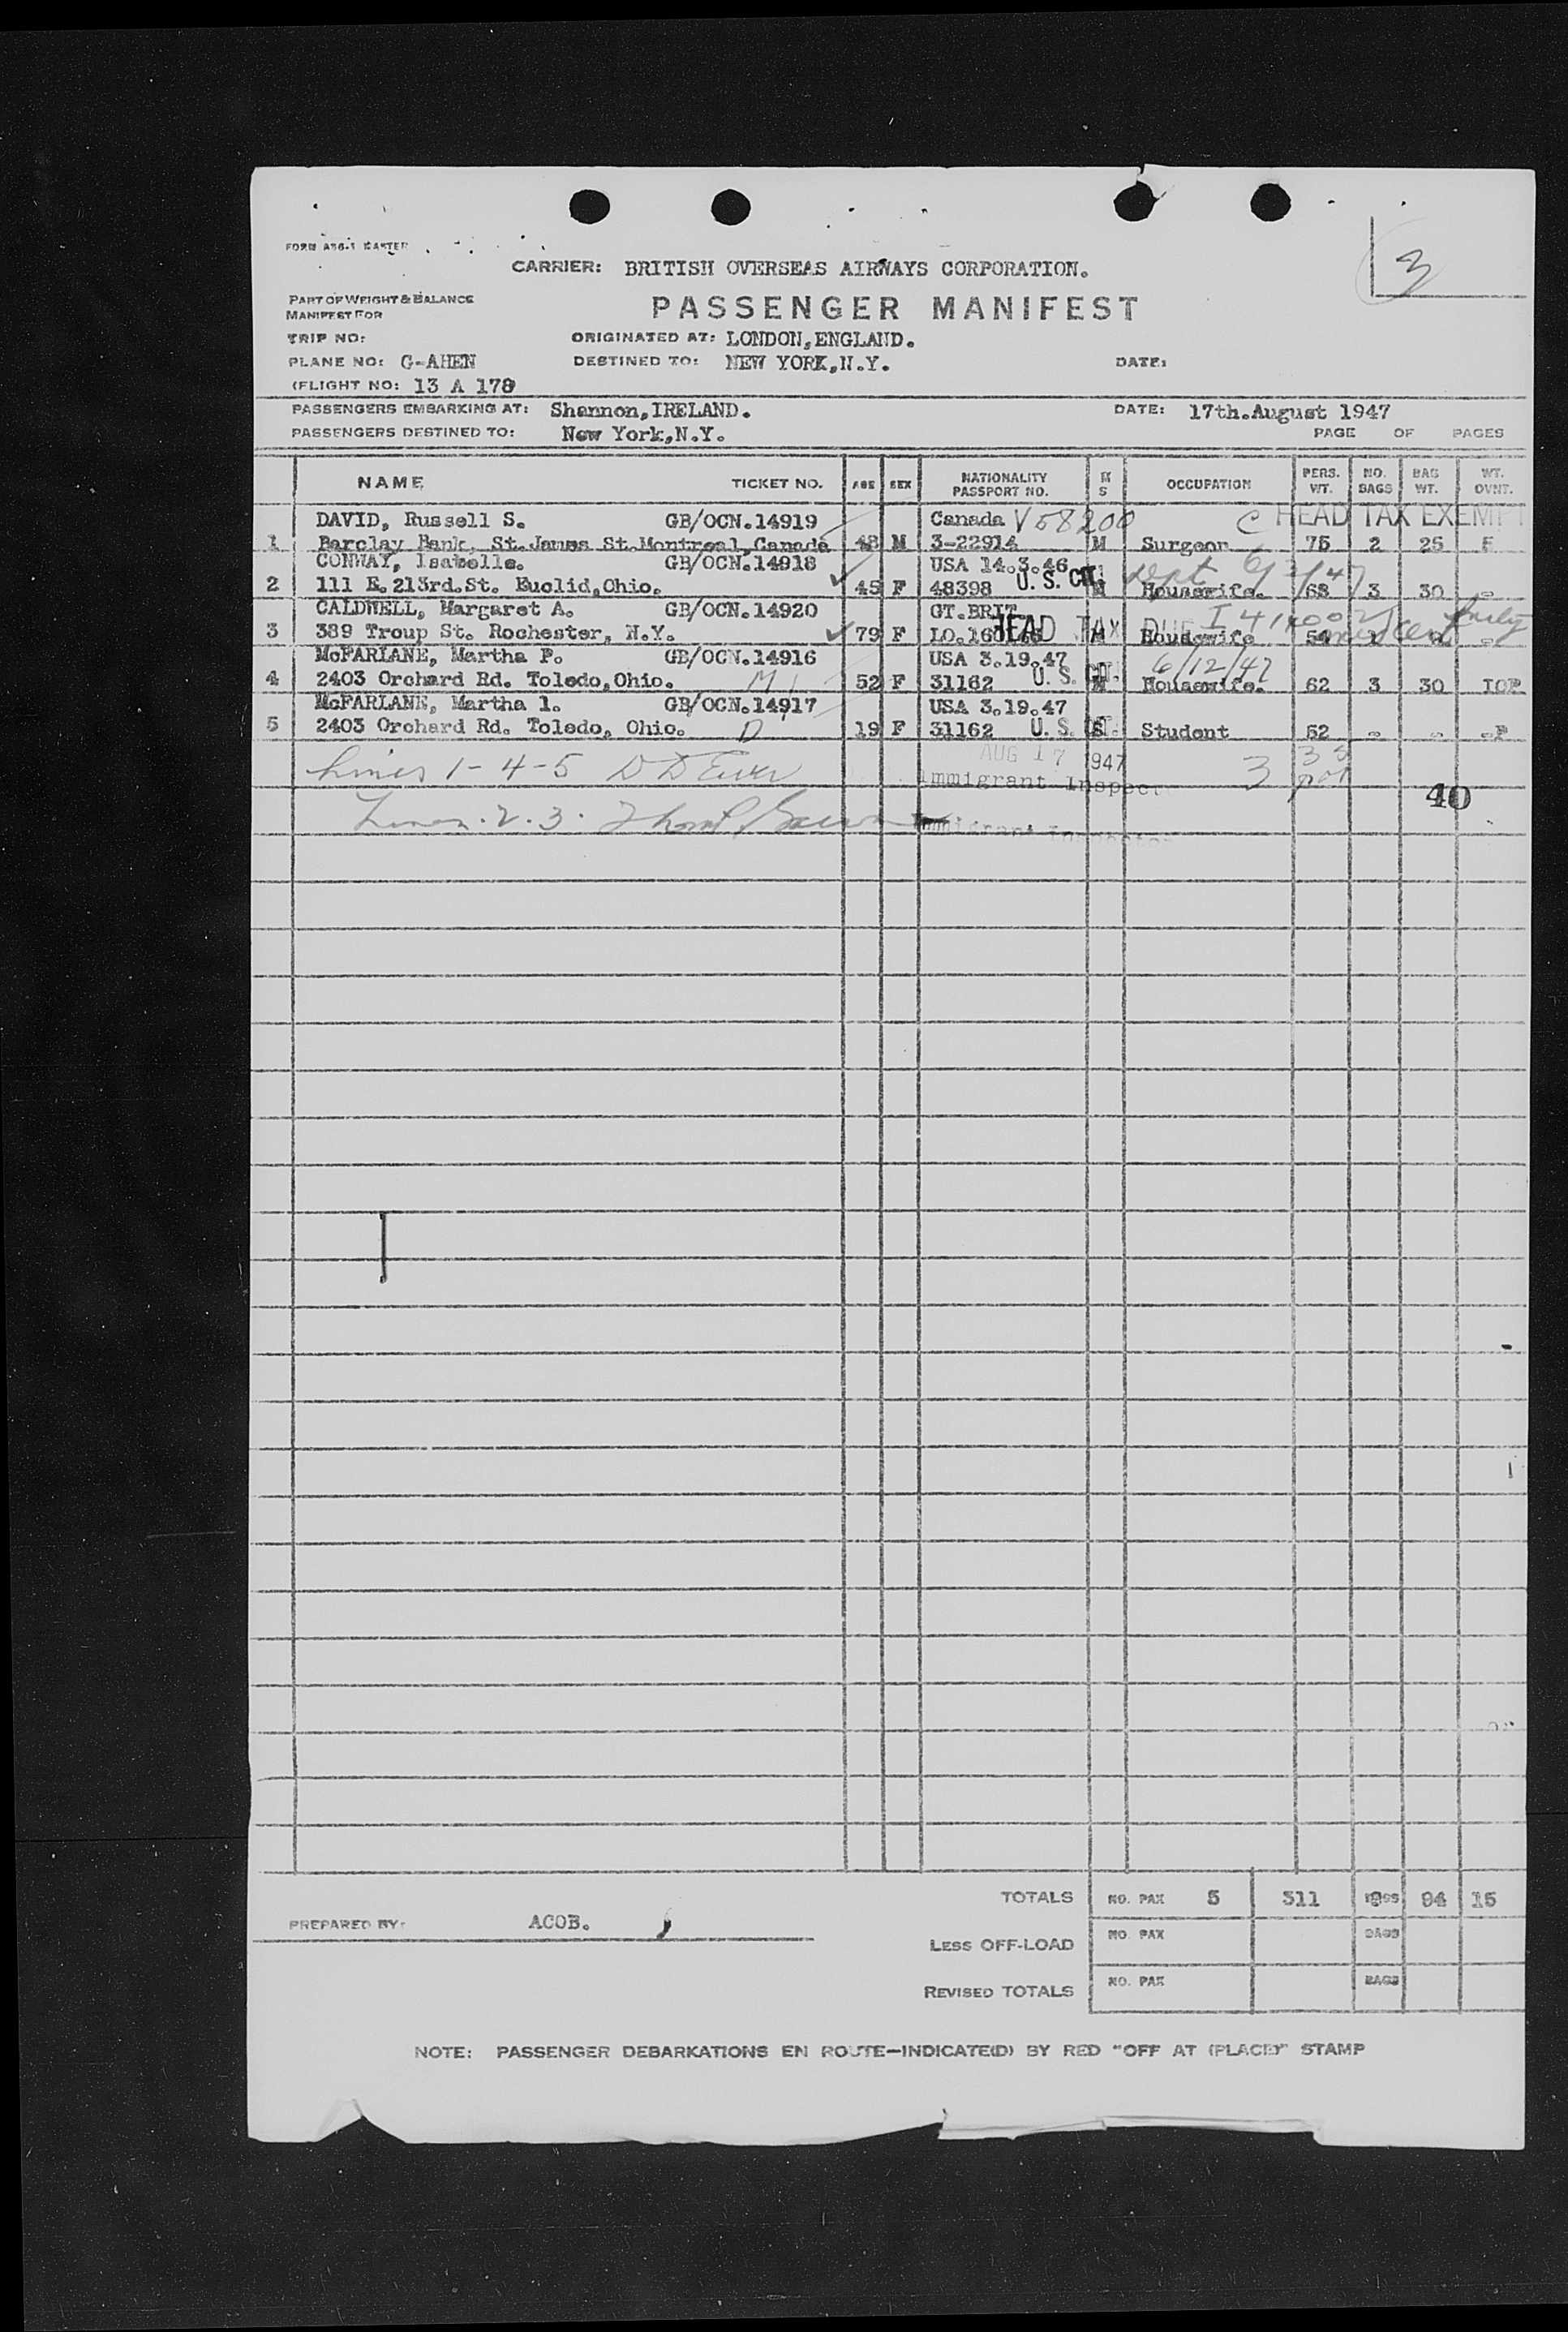 FORM A86-1 MASTER
3
CARRIER: BRITISH OVERSEAS AIRWAYS CORPORATION.
PART OF WEIGHT & BALANCE
MANIFEST FOR
PASSENGER MANIFEST
TRIP NO:
ORIGINATED AT: LONDON,ENGLAND.
PLANE NO: G-AHEN
DESTINED TO: NEW YORK,N.Y.
DATE:
(FLIGHT NO: 13 A 178
PASSENGERS EMBARKING AT: Shannon,IRELAND.
DATE: 17th.August 1947
PASSENGERS DESTINED TO: New York,N.Y.
PAGE OF PAGES
NAME TICKET NO. AGE SEX NATIONALITY PASSPORT NO. M S OCCUPATION PERS. WT. NO. BAGS BAG WT. WT. OVNT.
DAVID, Russell S. GB/OCN.14919 Canada V58200 C HEAD TAX EXEMPT
1 Barclay Bank, St.James St.Montreal,Canada 48 M 3-22914 M Surgeon 75 2 25 F
CONWAY, Isabelle. GB/OCN.14918 USA 14.3.46
2 111 E.213rd.St. Euclid,Ohio. 45 F 48398 U.S. CIT. M Housewife. 68 3 30 -
CALDWELL, Margaret A. GB/OCN.14920 GT.BRIT HEAD TAX DUE
3 389 Troup St. Rochester, N.Y. 79 F M Housewife 54
McFARLANE, Martha P. GB/OCN.14916 USA 3.19.47 6/12/47
4 2403 Orchard Rd. Toledo,Ohio. M 52 F 31162 U.S. CIT. M Housewife. 62 3 30 TOP
McFARLANE, Martha 1. GB/OCN.14917 USA 3.19.47
5 2403 Orchard Rd. Toledo, Ohio. D 19 F 31162 U.S. CIT. S Student 52 - - -F
Lines 1-4-5
AUG 17 1947
Immigrant Inspector
3
40
Lines. 2.3.
Immigrant Inspector
TOTALS NO. PAX 5 311 BAGS 94 15
PREPARED BY: ACOB.
LESS OFF-LOAD NO. PAX BAGS
REVISED TOTALS NO. PAX BAGS
NOTE: PASSENGER DEBARKATIONS EN ROUTE—INDICATE(D) BY RED "OFF AT (PLACE)" STAMP